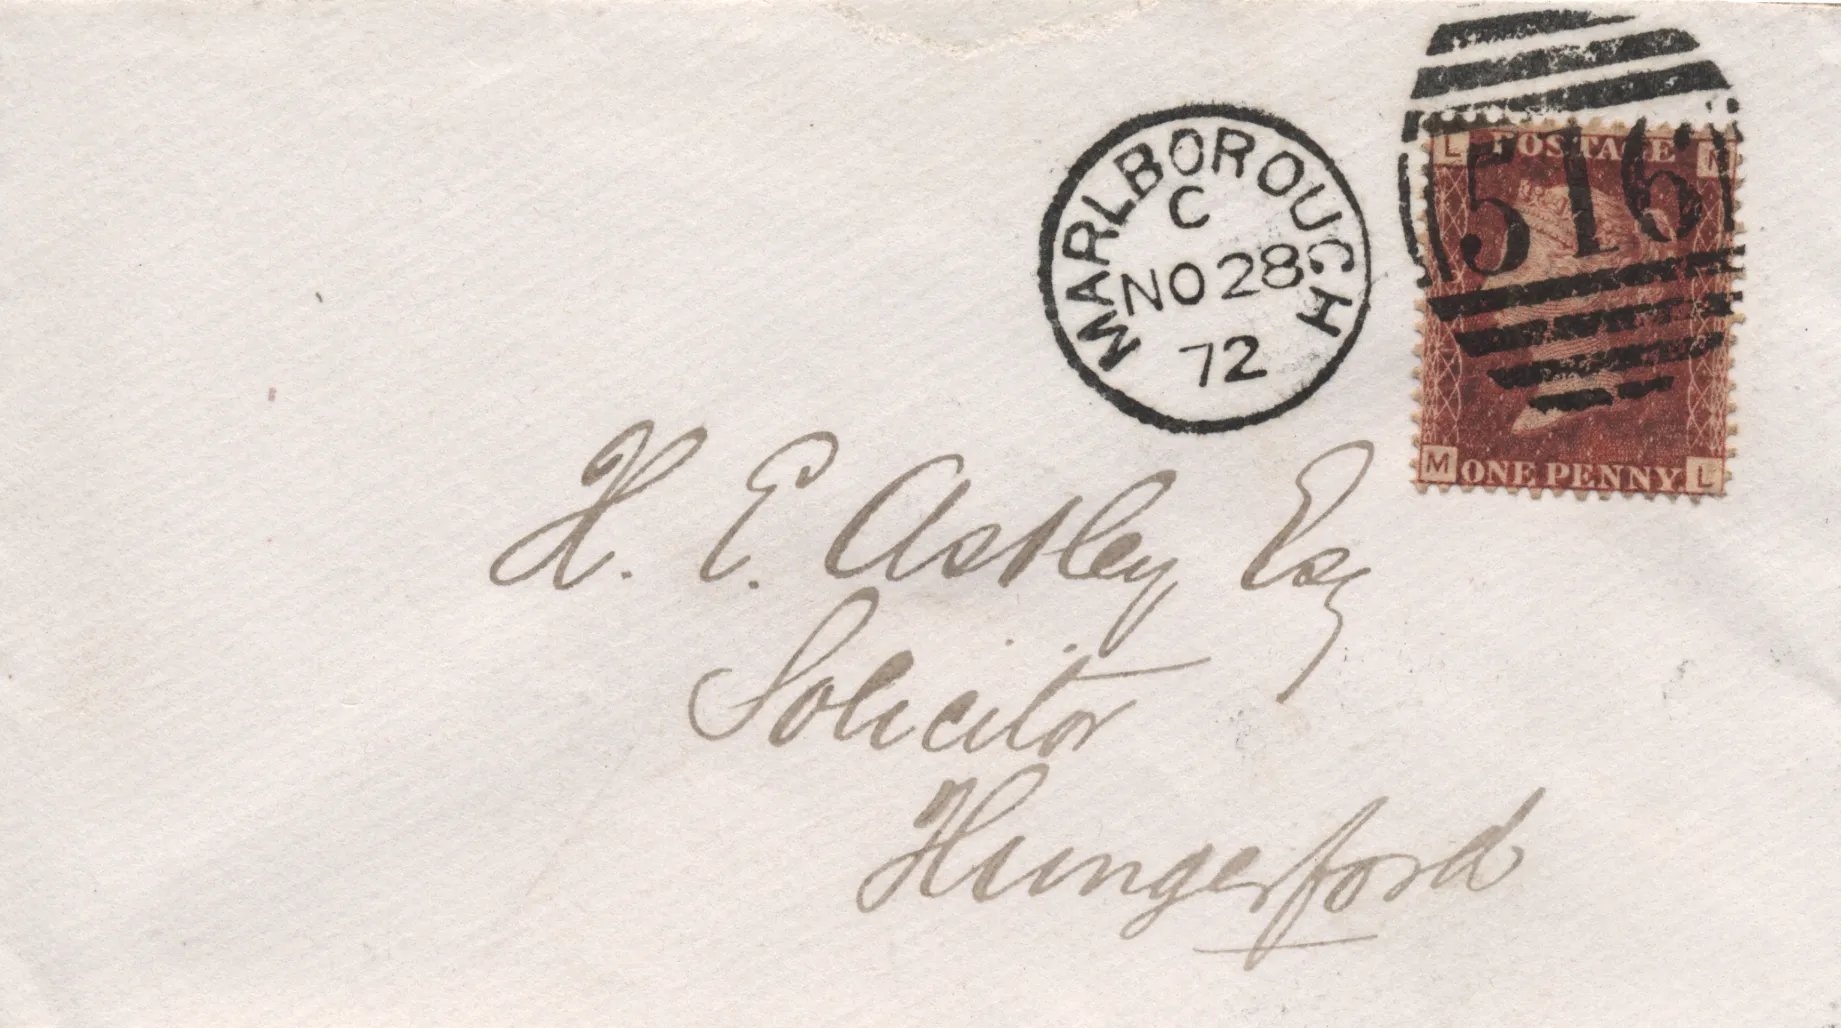 MARLBOROUGH
C
NO 28
72
516
L POSTAGE M
M ONE PENNY. L
H. E. Astley Esq
Solicitor
Hungerford